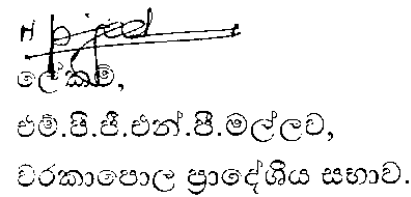 ලේකම්,
එම්.පී.ජී.එන්.පී.මල්ලව,
වරකාපොල ප්‍රාදේශීය සභාව.